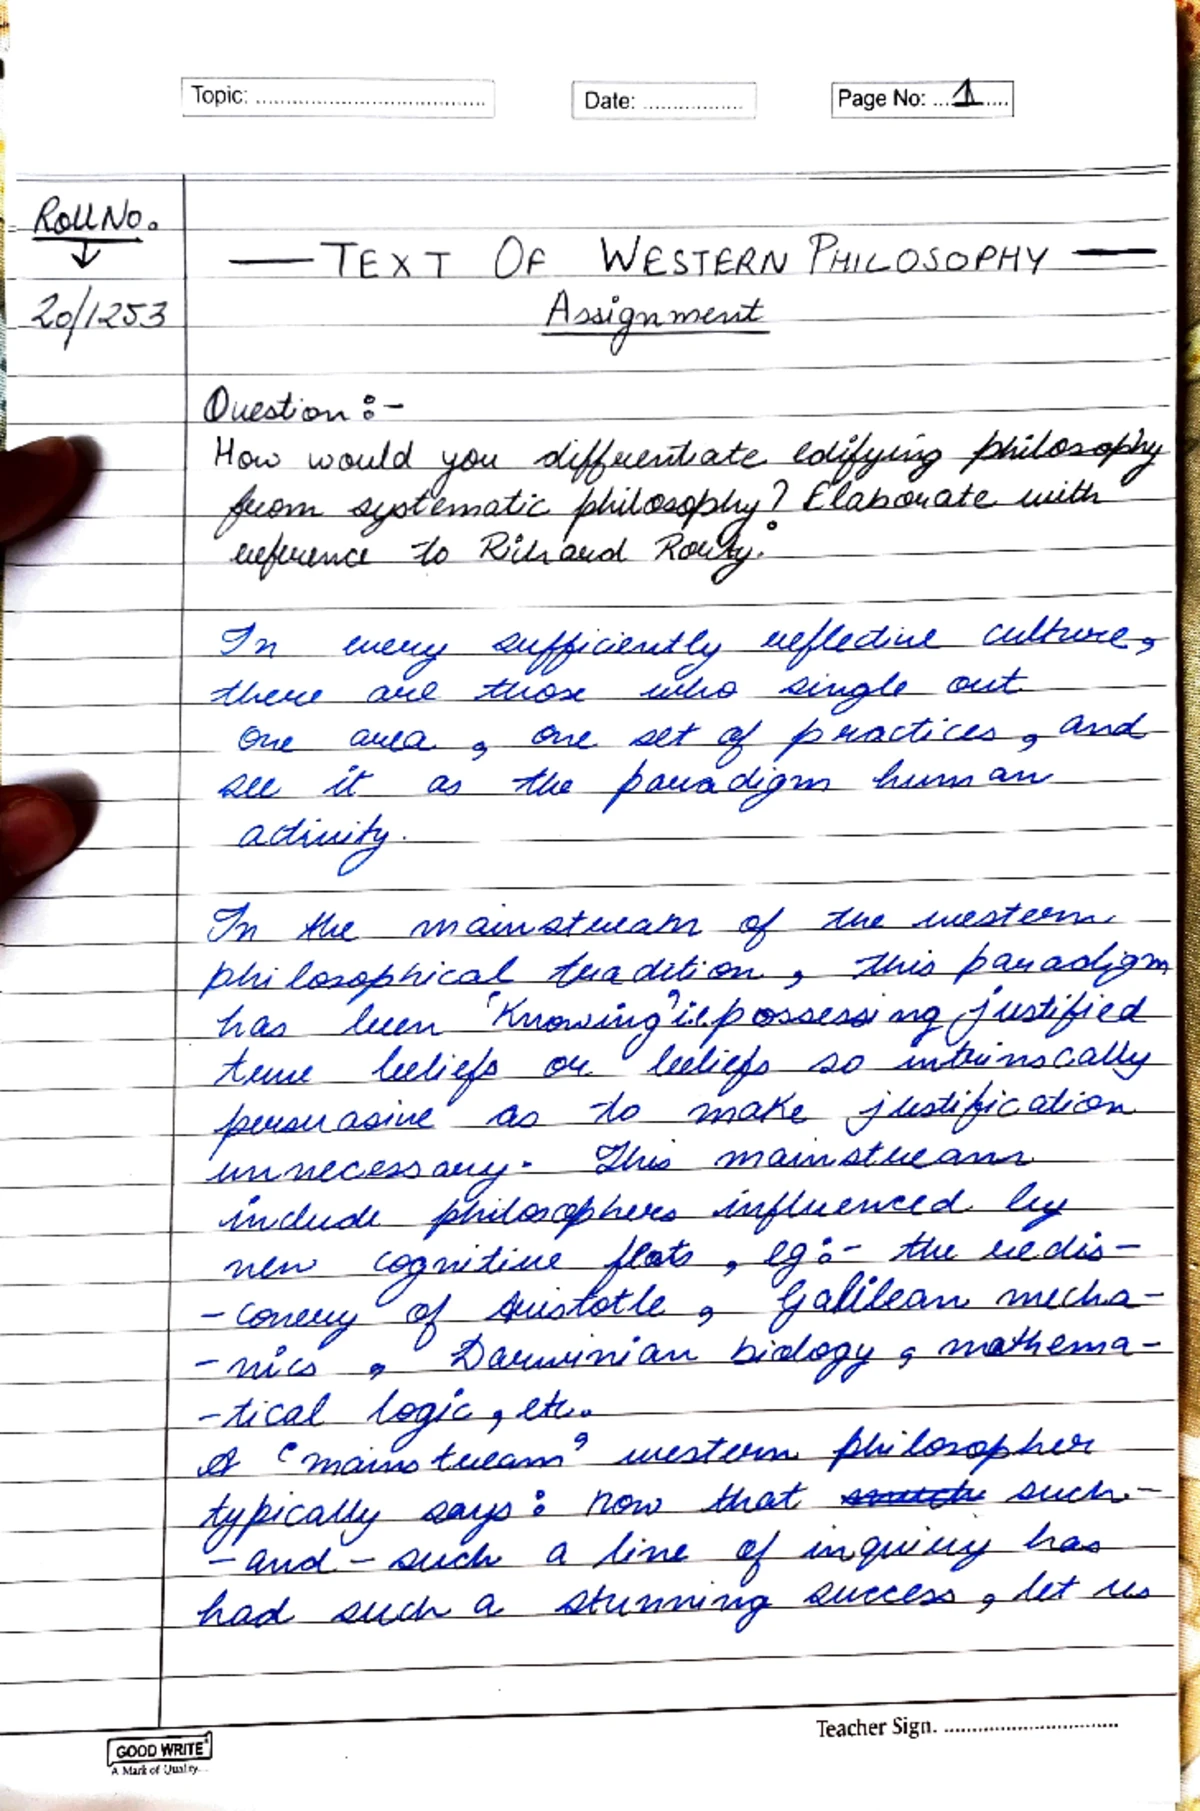 Topic: ........................................
Date: ..................
Page No: ...1.....
Roll No.
↓
20/1253
— TEXT OF WESTERN PHILOSOPHY —
Assignment
Question :-
How would you differentiate edifying philosophy
from systematic philosophy? Elaborate with
reference to Richard Rorty.
In every sufficiently reflective culture,
there are those who single out
one area, one set of practices, and
see it as the paradigm human
activity.
In the mainstream of the western
philosophical tradition, this paradigm
has been "Knowing" i.e possessing justified
true beliefs or beliefs so intrinscally
persuasive as to make justification
unnecessary. This mainstream
include philosophers influenced by
new cognitive feats, eg:- the redis-
-covery of Aristotle, Galilean mecha-
-nics, Darwinian biology, mathema-
-tical logic, etc.
A "mainstream" western philosopher
typically says: Now that such-
-and-such a line of inquiry has
had such a stunning success, let us
Teacher Sign. ...............................
GOOD WRITE
A Mark of Quality...